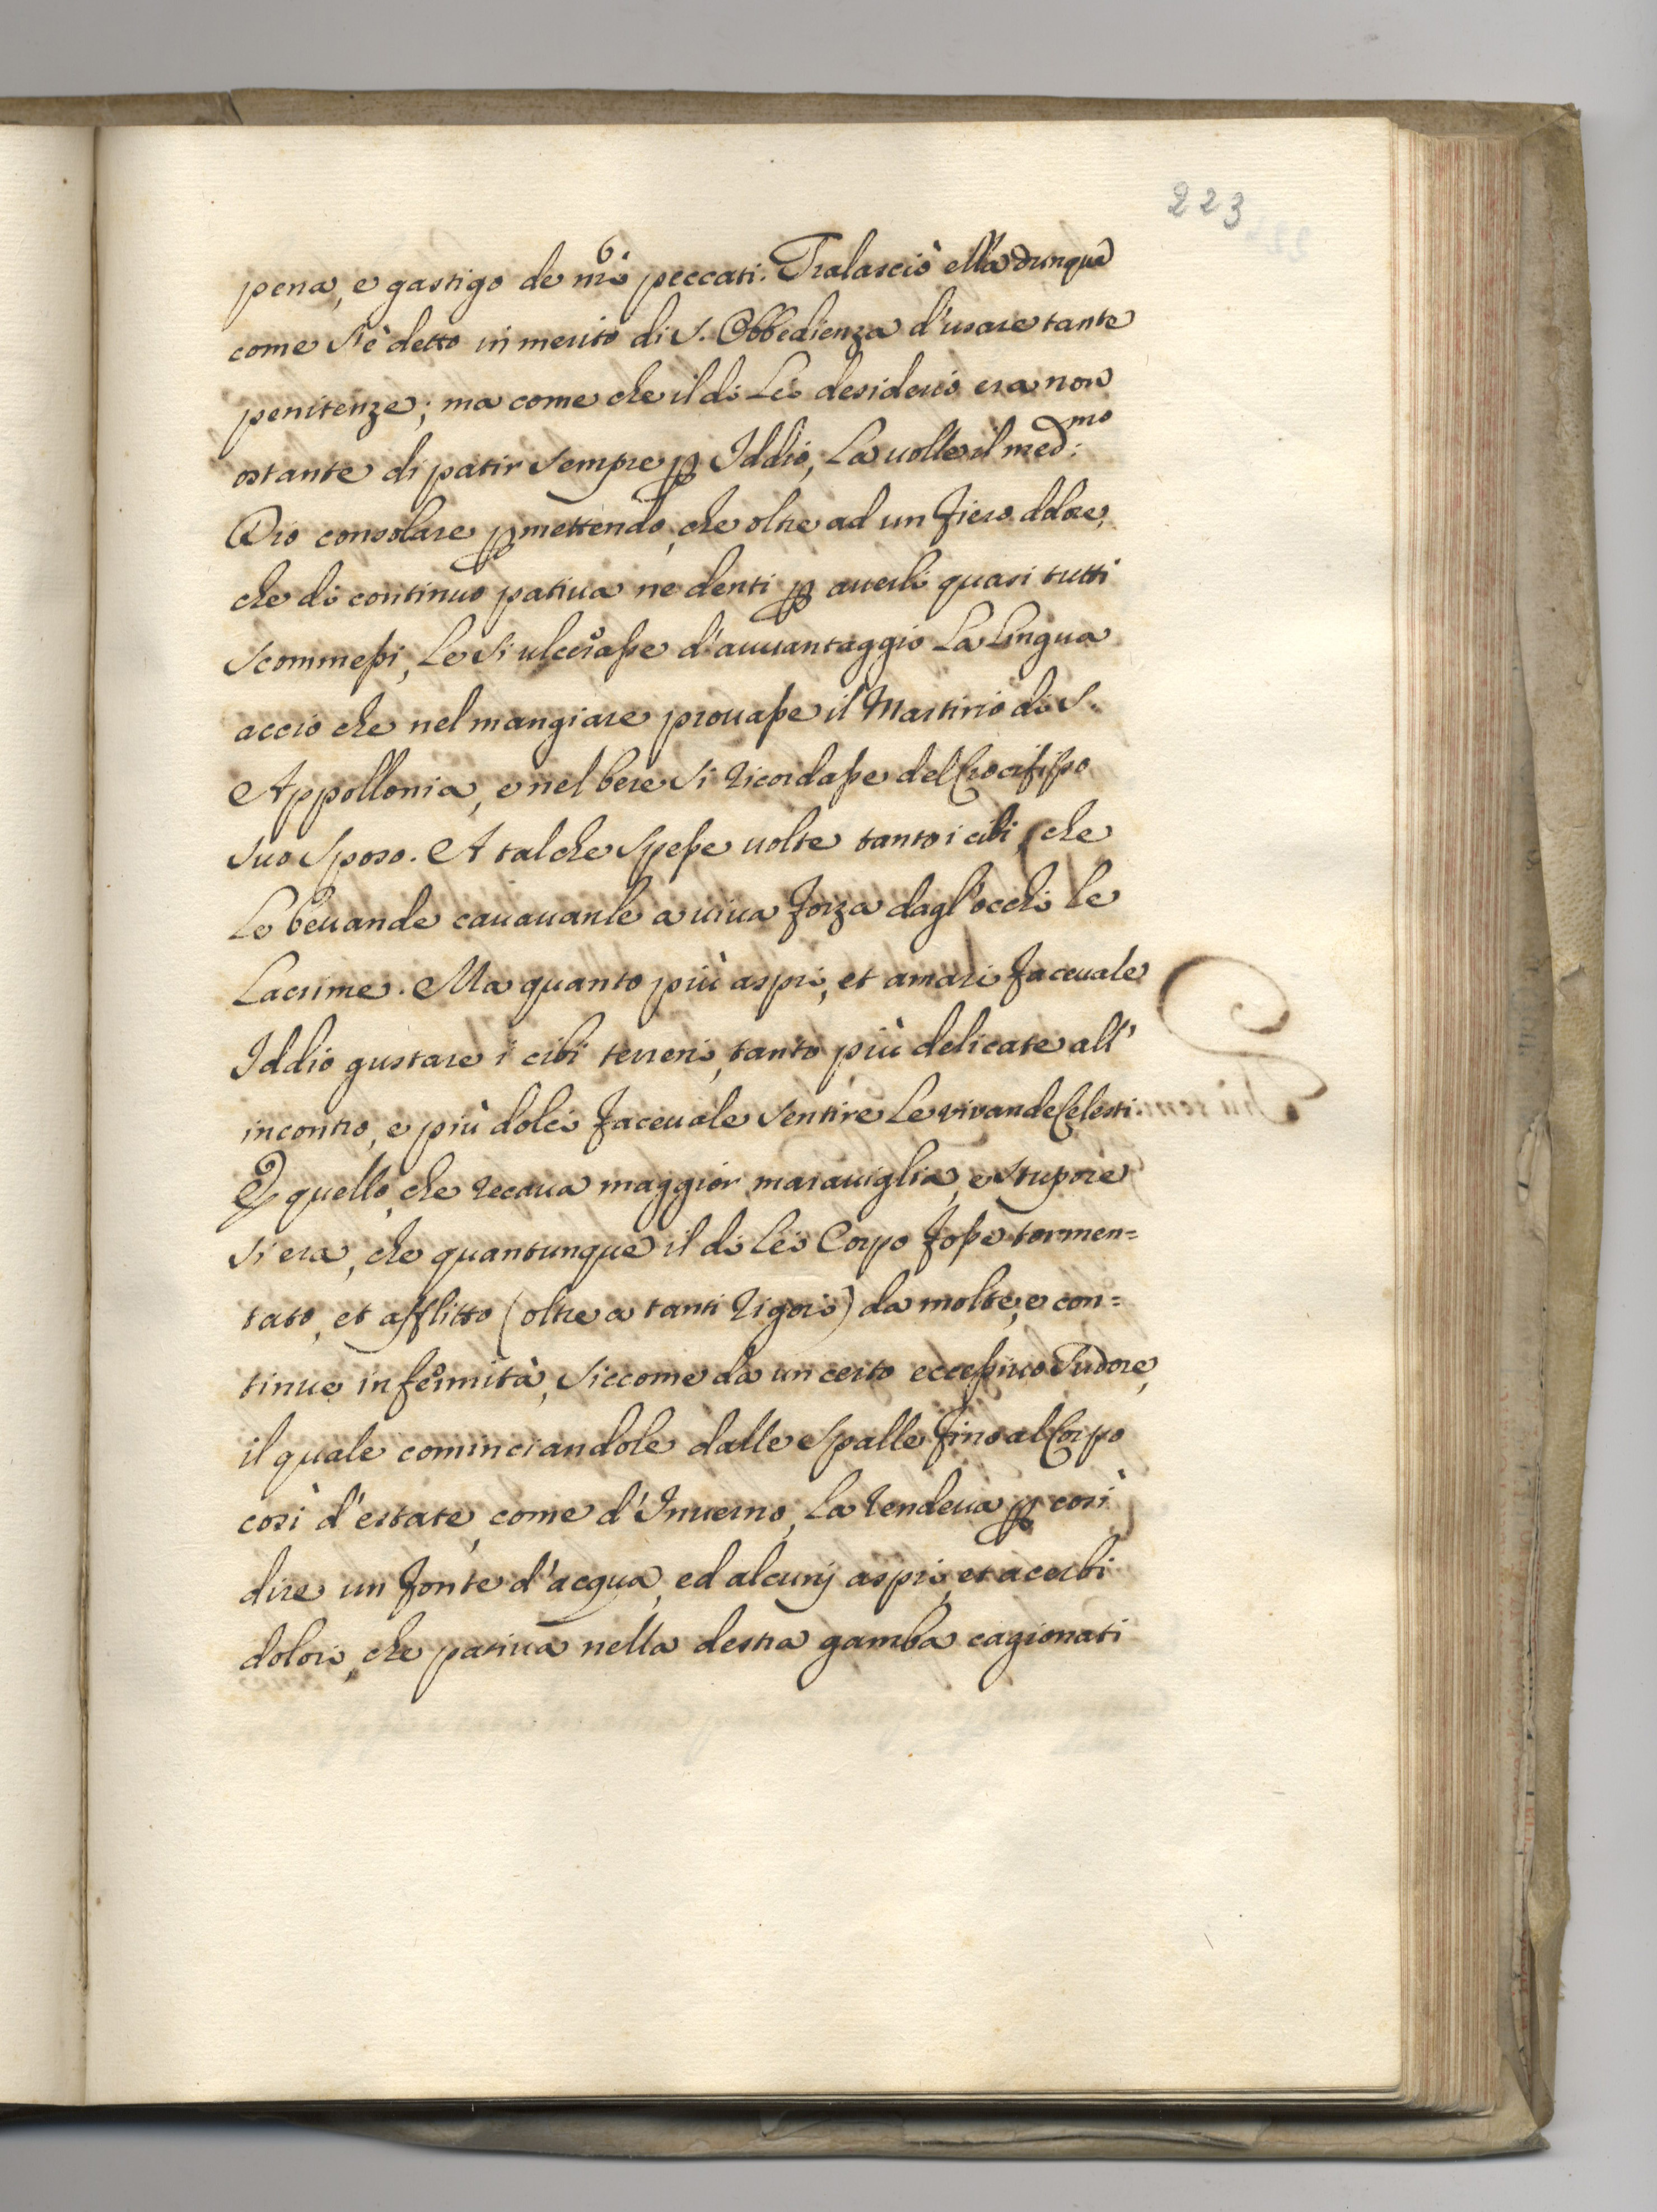 223
pena, e gastigo de nři peccati. Tralasciò ella dunque
come s'è detto in merito di S. Obbedienza d'usare tante
penitenze; ma come che il di Lei desiderio era non
ostante di patir sempre ꝑ Iddio, La volle il med:mo
Dio consolare ꝑmettendo, che oltre ad un fiero dolore,
che di continuo patiua ne denti ꝑ auerli quasi tutti
scommeßi, Le si ulceraße d'auuantaggio La Lingua
accio che nel mangiare prouaße il Martirio di S.
Appollonia, e nel bere si ricordaße del Crocifißo
suo Sposo. A talche speße uolte tanto i cibi, che
Le beuande cauauanle a uiua forza dagl'occhi le
Lacrime. Ma quanto più aspri, et amari faceuale
Iddio gustare i cibi terreni, tanto più delicate all'
incontro, e più dolci faceuale sentire Le vivande Celesti.
E quello, che recaua maggior marauiglia, e stupore
si era, che quantunque il di Lei Corpo foße tormen=
tato, et afflitto (oltre a tanti rigori) da molte, e con=
tinue infermità, siccome da un certo ecceßiuo Sudore,
il quale cominciandole dalle Spalle fino al Corpo
così d'estate, come d'Inuerno, La rendeua ꝑ così
dire un fonte d'acqua, ed alcunj aspri, et acerbi
dolori, che patiua nella destra gamba cagionati